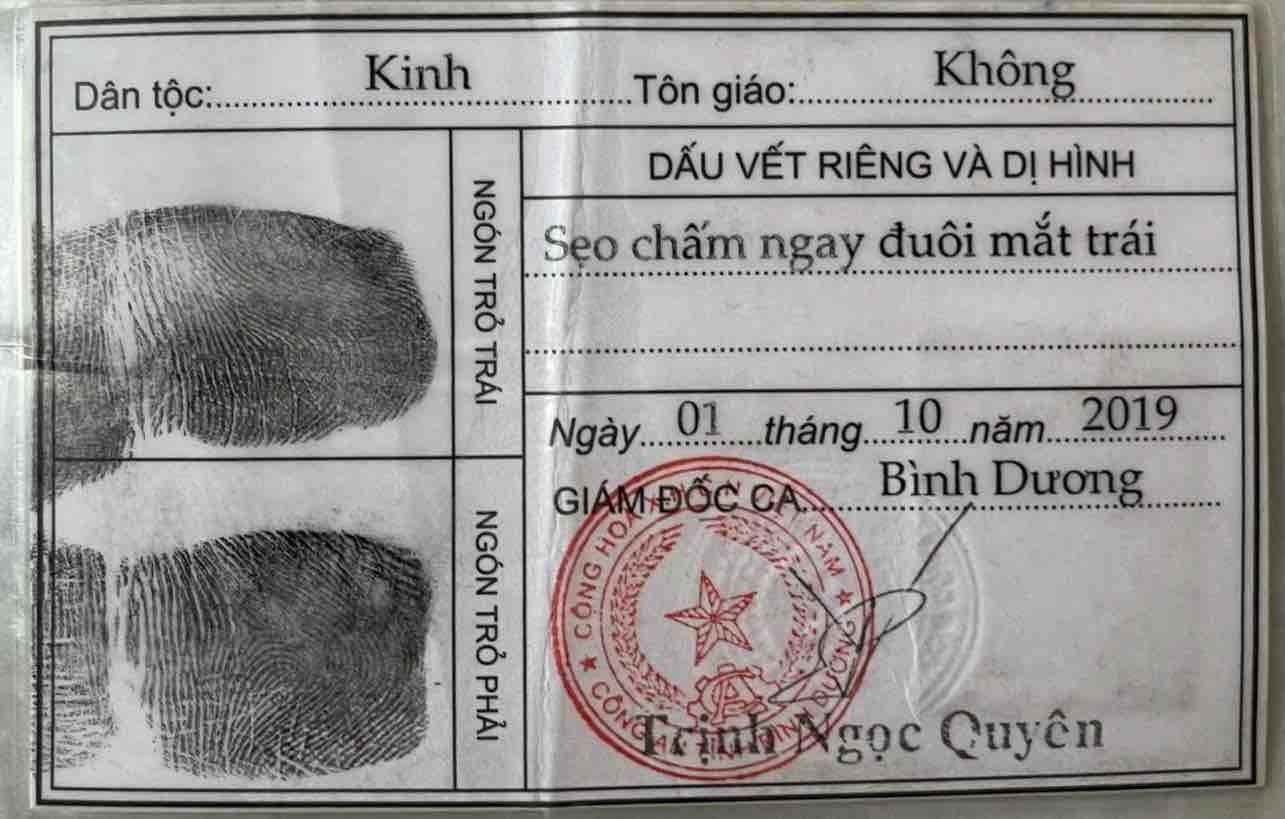 Dân tộc: Kinh Tôn giáo: Không
NGÓN TRỎ TRÁI
DẤU VẾT RIÊNG VÀ DỊ HÌNH
Sẹo chấm ngay đuôi mắt trái
Ngày 01 tháng 10 năm 2019
GIÁM ĐỐC CA Bình Dương
NGÓN TRỎ PHẢI
CỘNG HÒA NAM
CÔNG AN TỈNH BÌNH DƯƠNG
Trịnh Ngọc Quyên